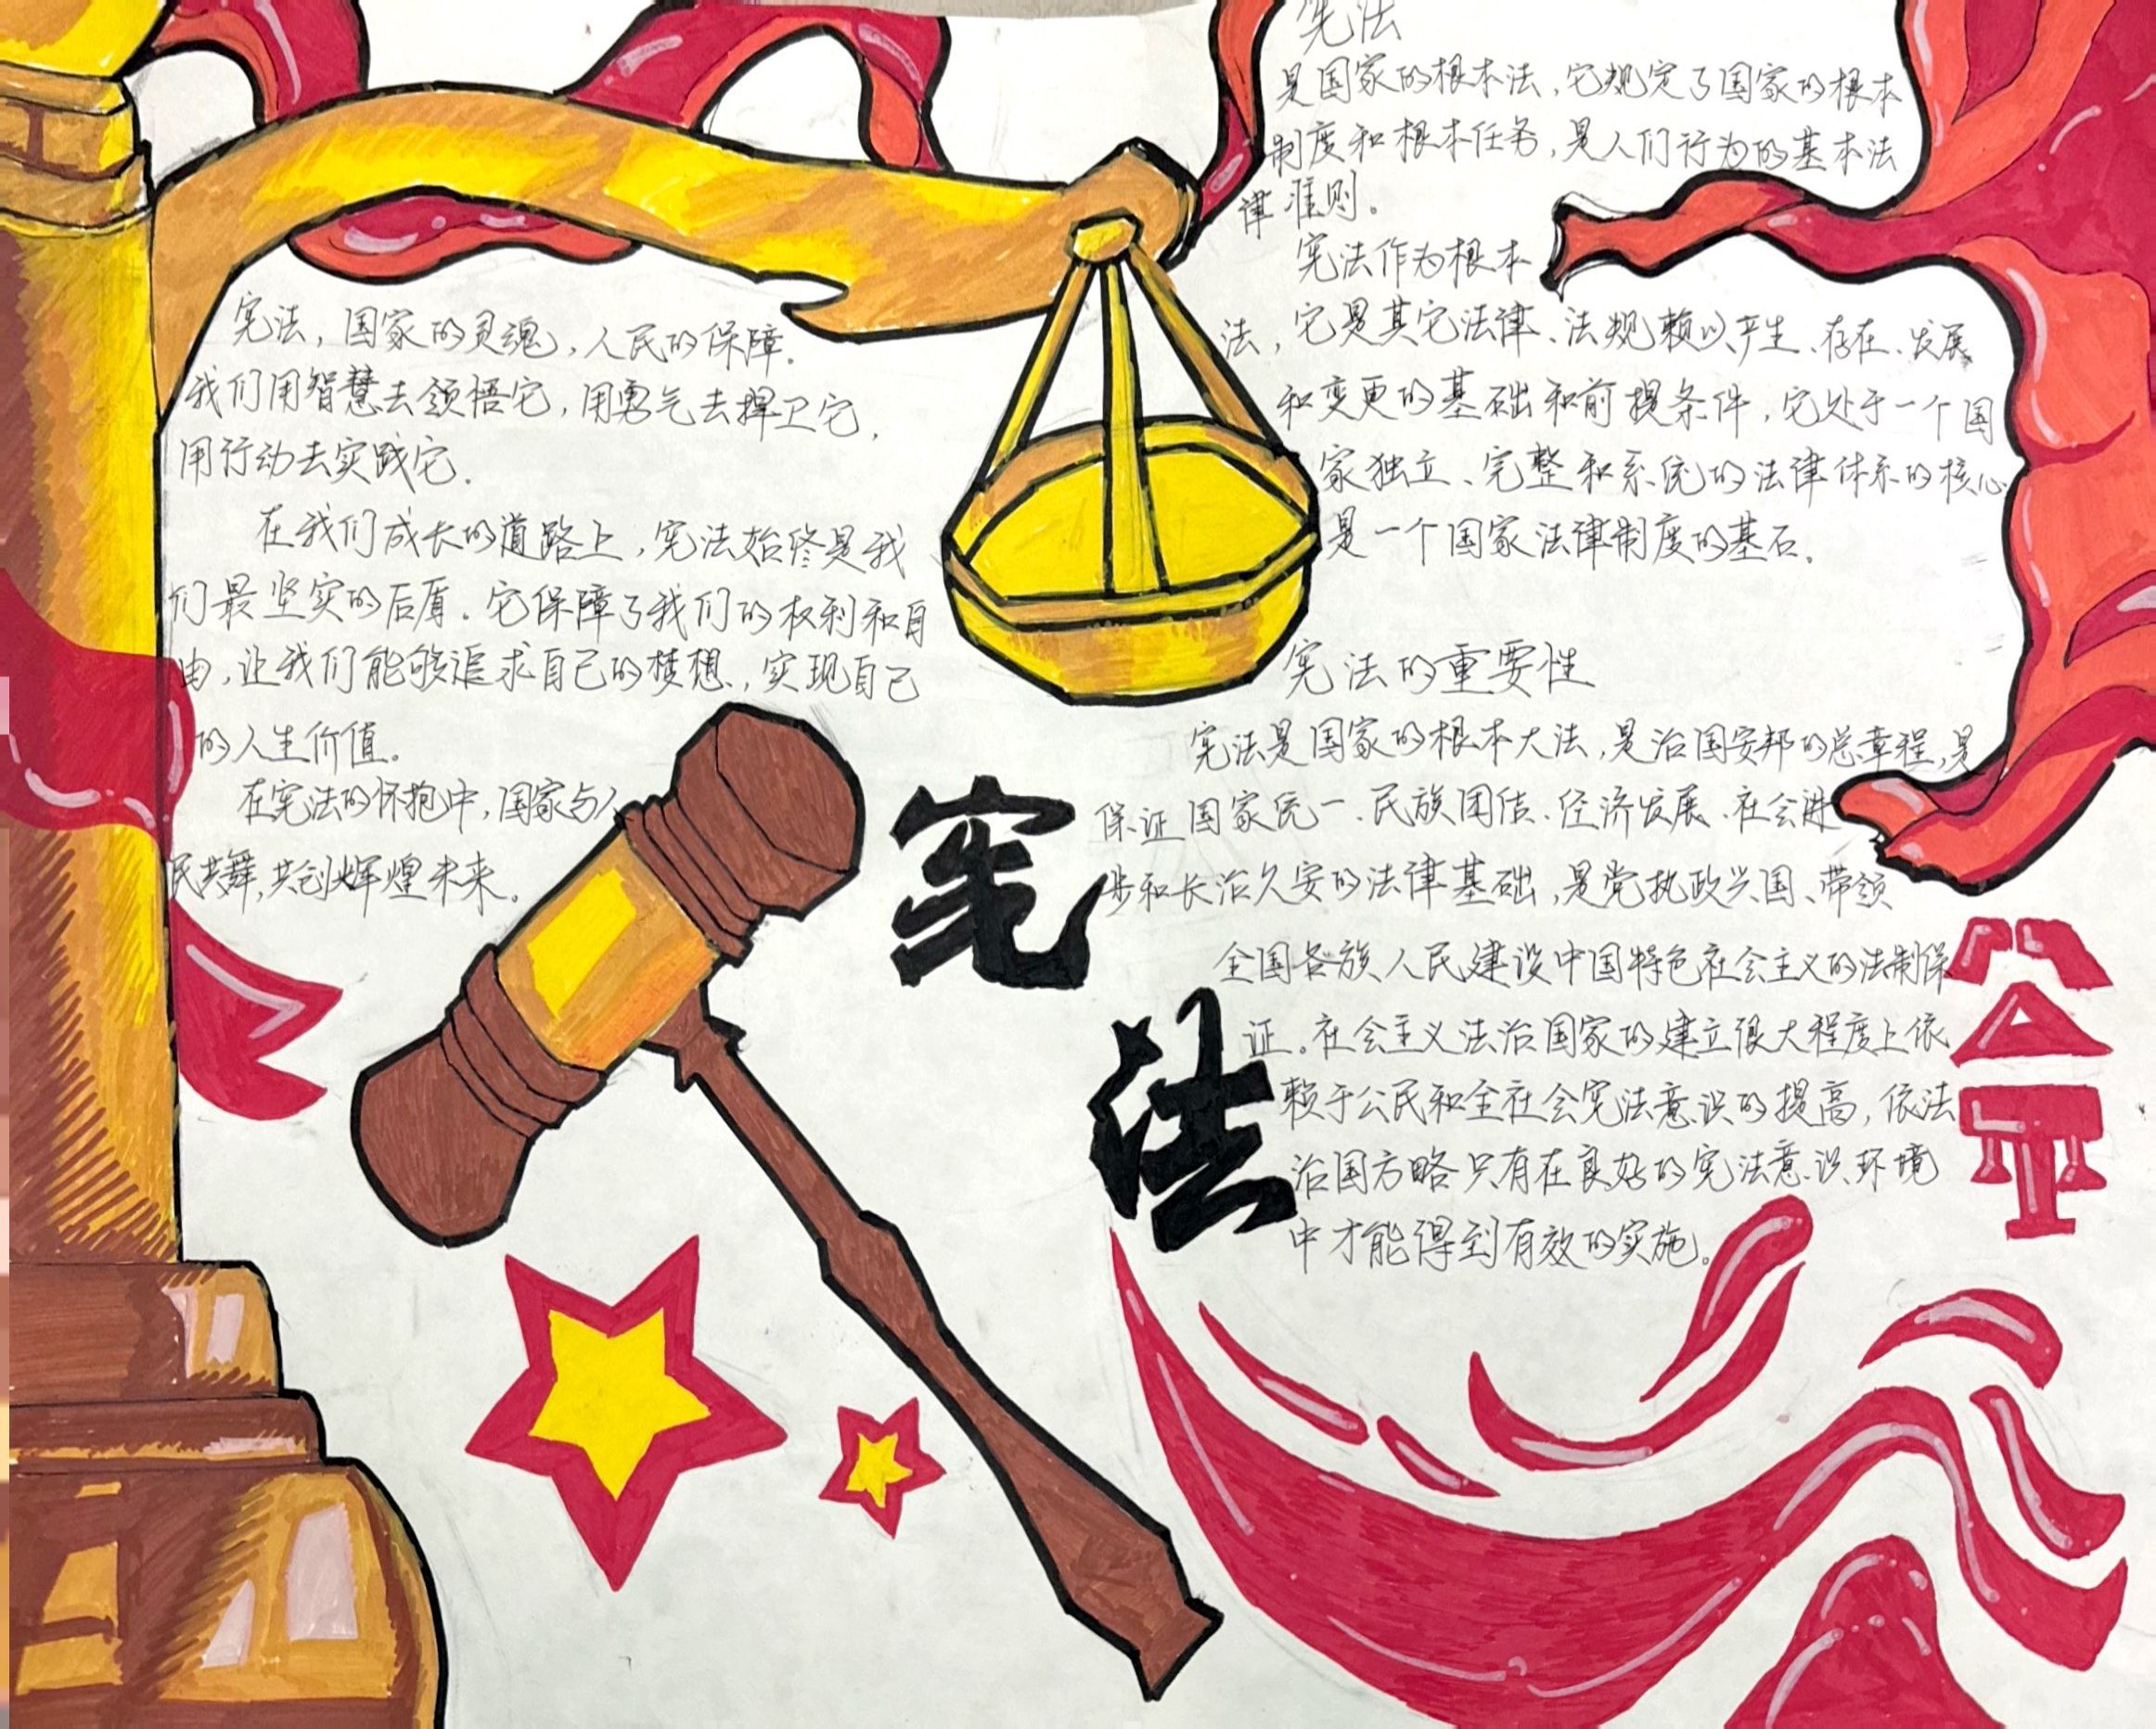 宪法，国家的灵魂，人民的保障.
我们用智慧去领悟它，用勇气去捍卫它，
用行动去实践它.
在我们成长的道路上，宪法始终是我
们最坚实的后盾.它保障了我们的权利和自
由，让我们能够追求自己的梦想，实现自己
的人生价值。
在宪法的怀抱中，国家与人
民共舞，共创辉煌未来。
宪法
宪法
是国家的根本法，它规定了国家的根本
制度和根本任务，是人们行为的基本法
律准则。
宪法作为根本
法，它是其它法律、法规赖以产生、存在、发展
和变更的基础和前提条件，它处于一个国
家独立、完整和系统的法律体系的核心
是一个国家法律制度的基石.
宪法的重要性
宪法是国家的根本大法，是治国安邦的总章程，是
保证国家统一、民族团结、经济发展、社会进
步和长治久安的法律基础，是党执政兴国、带领
全国各族人民建设中国特色社会主义的法制保
证。社会主义法治国家的建立很大程度上依
赖于公民和全社会宪法意识的提高，依法
治国方略只有在良好的宪法意识环境
中才能得到有效的实施。